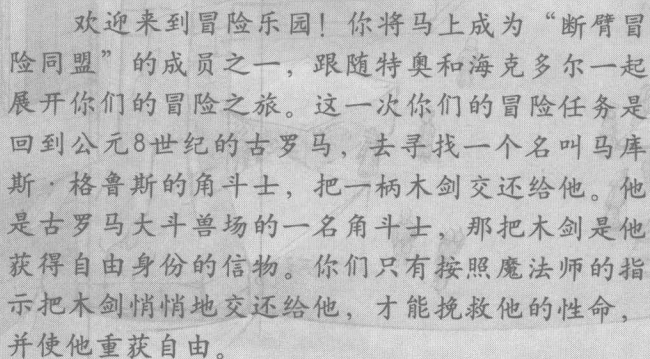 欢迎来到冒险乐园！你将马上成为“断臂冒
险同盟”的成员之一，跟随特奥和海克多尔一起
展开你们的冒险之旅。这一次你们的冒险任务是
回到公元8世纪的古罗马，去寻找一个名叫马库
斯·格鲁斯的角斗士，把一柄木剑交还给他。他
是古罗马大斗兽场的一名角斗士，那把木剑是他
获得自由身份的信物。你们只有按照魔法师的指
示把木剑悄悄地交还给他，才能挽救他的性命，
并使他重获自由。